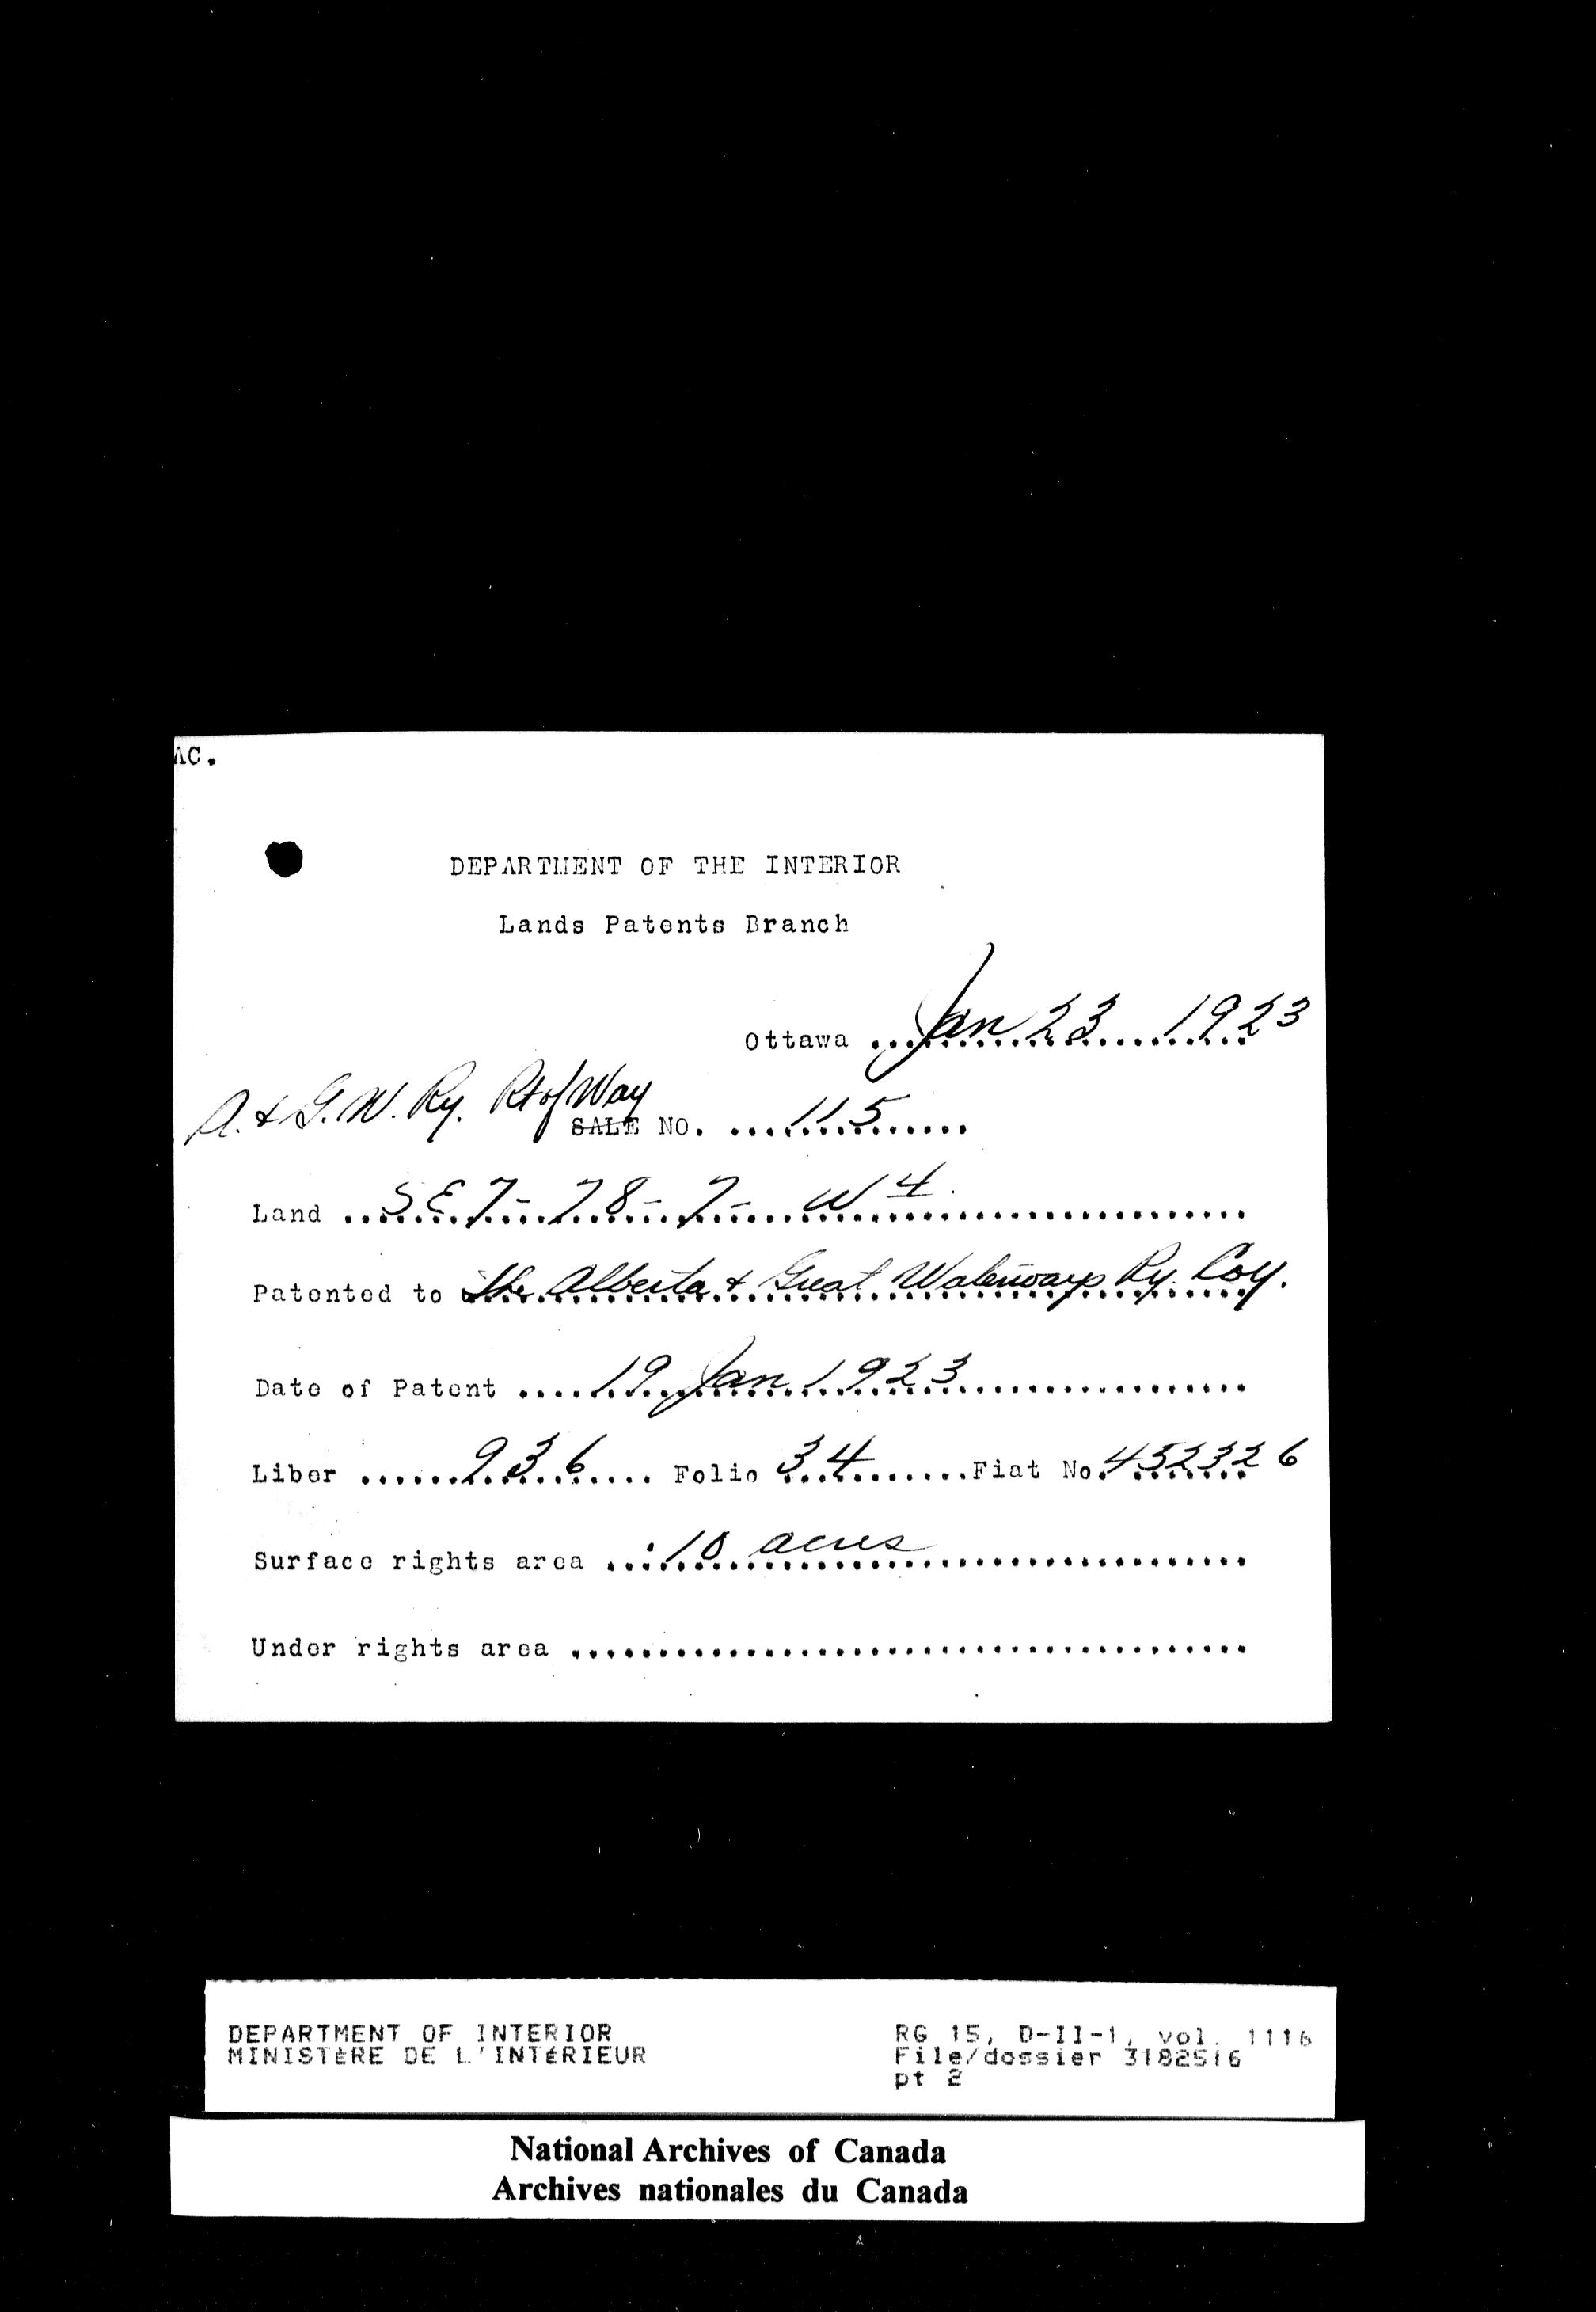 AC.
DEPARTMENT OF THE INTERIOR
Lands Patents Branch
Ottawa Jan 23 1923
A. & G. W. Ry. Rt of Way
SALE NO. 115
Land S E 7 - 78 - 7 - W 4.
Patented to The Alberta & Great Waterways Ry. Coy.
Date of Patent 19 Jan 1923
Liber 936 Folio 34 Fiat No. 452326
Surface rights area .10 acres
Under rights area
DEPARTMENT OF INTERIOR
MINISTÈRE DE L'INTÉRIEUR
RG 15, D-II-1, vol. 1116
File/dossier 3182516
pt 2
National Archives of Canada
Archives nationales du Canada